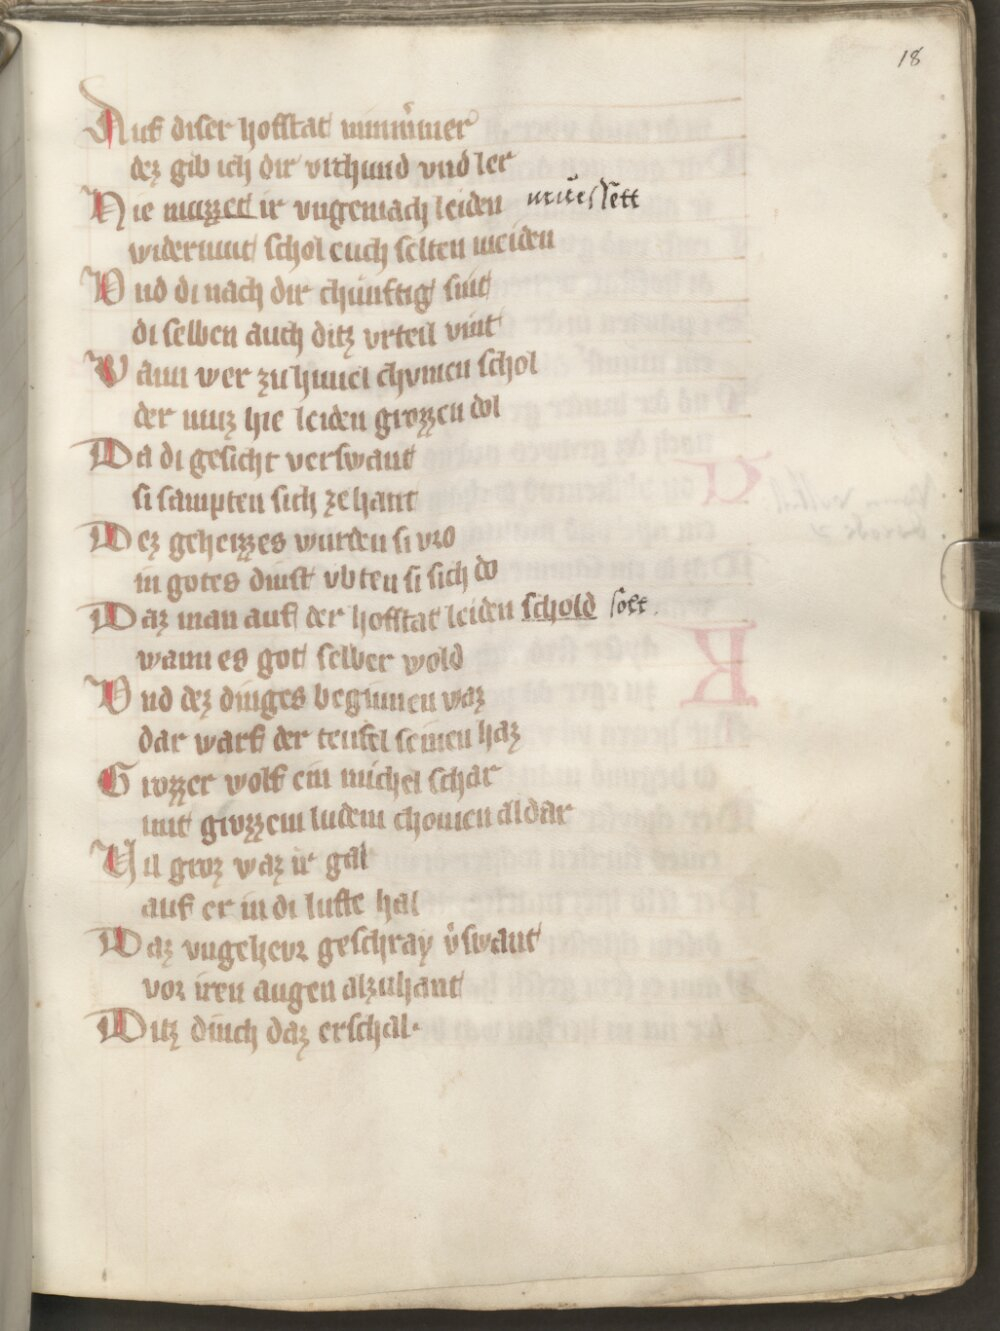 18
Auf diser hofstat nimmer
dez gib ich dir vrchund vnd ler
Hie muzzet ir vngemach leiden
widermut schol euch selten meiden
Vnd di nach dir chunftig sint
di selben auch ditz vrteil vint
Wann wer zu himel chomen schol
der muz hie leiden grozzen dol
Da di gesicht verswant
si sampten sich ze hant
Dez geheizzes wurden si vro
in gotes dinst vbten si sich do
Daz man auf der hofstat leiden schold solt.
wann es got selber wold
Vnd dez dinges beginnen waz
dar warf der teufel seinen haz
Grozzer wolf ein michel schar
mit grozzem ludem chomen aldar
Vil groz waz ir gal
auf er in di lufte hal
Daz vngeheur geschray v̓swant
vor iren augen alzuhant
Ditz dinch daz erschal·